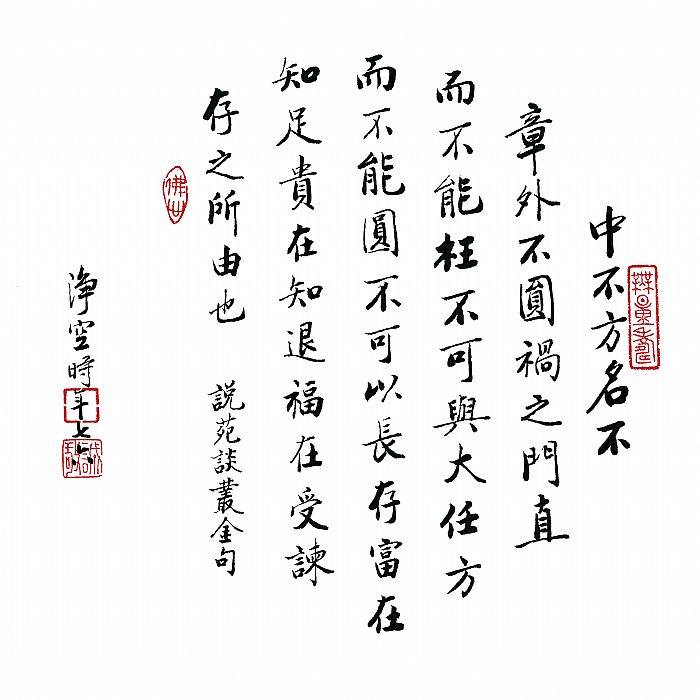 中不方名不
章外不圓禍之門直
而不能枉不可與大任方
而不能圓不可以長存富在
知足貴在知退福在受諫
存之所由也
說苑談叢金句
淨空時年七六
無量壽
佛世